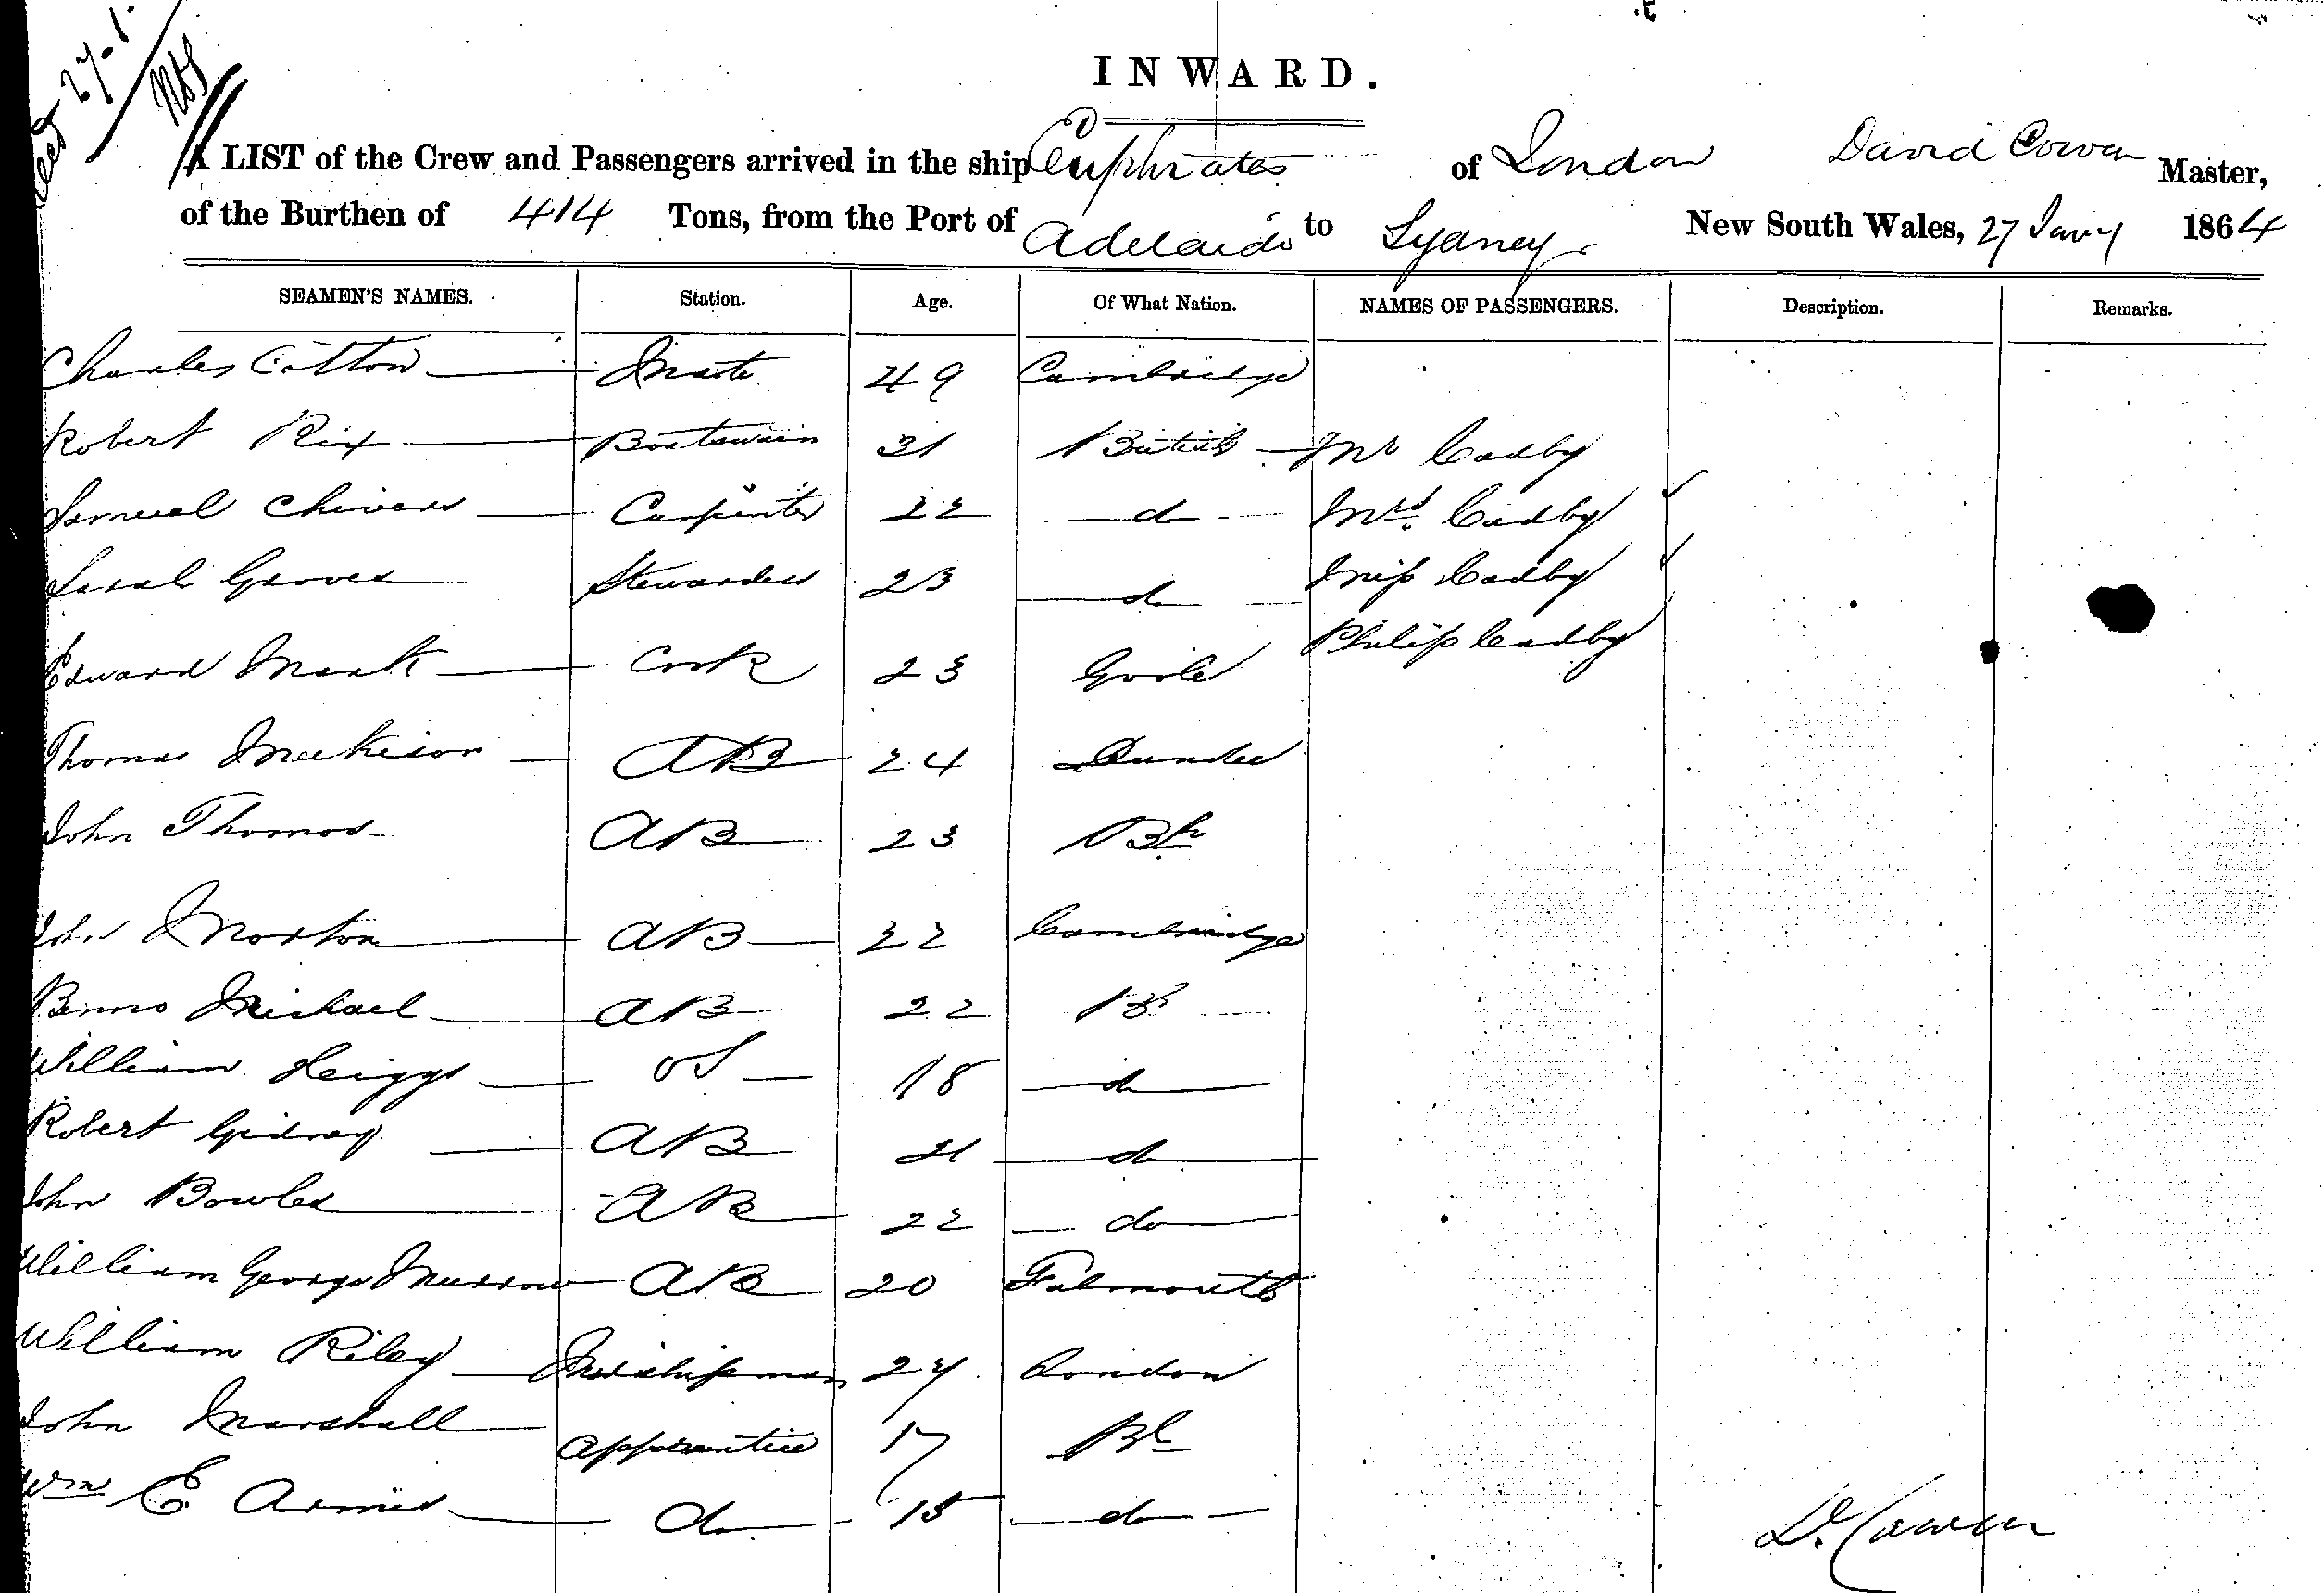 Recd 27.1
INWARD.
A LIST of the Crew and Passengers arrived in the ship Euphrates of London David Cowan Master,
of the Burthen of 414 Tons, from the Port of Adelaide to Sydney New South Wales, 27 Jany 1864
SEAMEN'S NAMES. Station. Age. Of What Nation. NAMES OF PASSENGERS. Description. Remarks.
Charles Cotton Mate 49 Cambridge
Robert Rix Boatswain 31 British Mr Cadby
Samuel Chivers Carpenter 22 do Mrs. Cadby
Sarah Groves Stewardess 23 do Miss Cadby
Philip Cadby
Edward Monk Cook 23 Goole
Thomas Mackison AB 24 Dundee
John Thomas AB 23 Bh
John Morton AB 22 Cambridge
Benno Michael AB 22 Bh
William Heiggs OS 18 do
Robert Gidney AB 21 do
John Bowles AB 22 do
William George AB 20 Falmouth
William Riley Midshipman 24 London
John Marshall apprentice 17 Bh
Wm E Armis do 15 do
D. Cowan